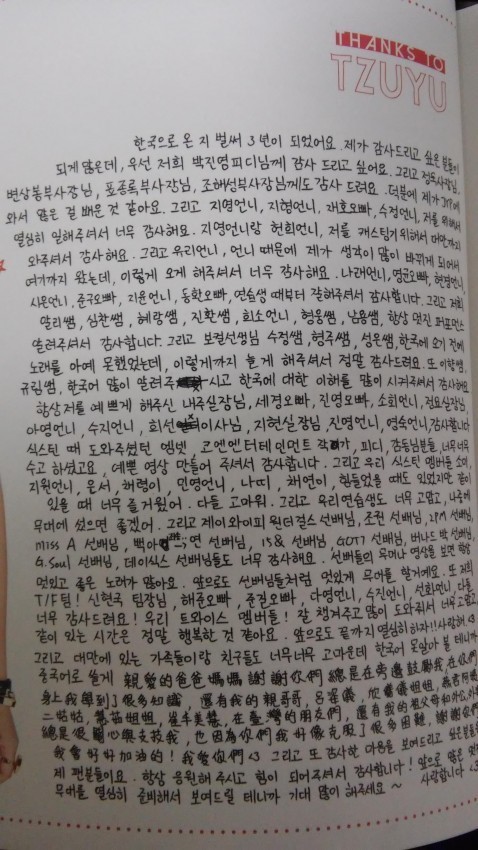 THANKS TO
TZUYU
한국으로 온 지 벌써 3년이 되었어요. 제가 감사드리고 싶은 분들이
되게 많은데, 우선 저희 박진영피디님께 감사 드리고 싶어요. 그리고 정욱사장님,
변상봉부사장님, 표종록부사장님, 조해성부사장님께도 감사 드려요. 덕분에 제가 JYP에
와서 많은 걸 배운 것 같아요. 그리고 지영언니, 지현언니, 재호오빠, 수정언니, 저를 위해서
열심히 일해주셔서 너무 감사해요. 지영언니랑 헌희언니, 저를 캐스팅키위해서 대만까지
와주셔서 감사해요. 그리고 유리언니, 언니 때문에 제가 생각이 많이 바뀌게 되어서
여기까지 왔는데, 이렇게 오게 해주셔서 너무 감사해요. 나래언니, 영균오빠, 현경언니,
시온언니, 준국오빠, 지윤언니, 동환오빠, 연습생 때부터 잘해주셔서 감사합니다. 그리고 저희
말리쌤, 심찬쌤, 혜랑쌤, 진환쌤, 희소언니, 형웅쌤, 남용쌤, 항상 멋진 퍼포먼스
알려주셔서 감사합니다. 그리고 보컬선생님 수정쌤, 형주쌤, 성은쌤, 한국에 오기 전에
노래를 아예 못했었는데, 이렇게까지 늘게 해주셔서 정말 감사드려요. 또 이학쌤,
규림쌤, 한국어 많이 알려주시고 한국에 대한 이해를 많이 시켜주셔서 감사해요
항상 저를 예쁘게 해주신 내주실장님, 세경오빠, 진영오빠, 소희언니, 정요실장님,
아영언니, 수지언니, 희선이사님, 지현실장님, 진영언니, 영숙언니 감사합니다
식스틴 때 도와주셨던 엠넷, 코엔엔터테인먼트 작가, 피디, 감독님분들, 너무너무
수고 하셨고요, 예쁜 영상 만들어 주셔서 감사합니다. 그리고 우리 식스틴 멤버들 소미,
지원언니, 은서, 채령이, 민영언니, 나띠, 채연이, 힘들었을 때도 있었지만 같이
있을 때 너무 즐거웠어. 다들 고마워. 그리고 우리연습생도 너무 고맙고, 나중에
무대에 섰으면 좋겠어. 그리고 제이와이피 원더걸스선배님, 조권 선배님, 2PM 선배님,
miss A 선배님, 백아연 선배님, 15& 선배님, GOT7 선배님, 버나드 박 선배님,
G.Soul 선배님, 데이식스 선배님들도 너무 감사해요. 선배들의 무대나 영상을 보면 항상
멋있고 좋은 노래가 많아요. 앞으로도 선배님들처럼 멋있게 무대를 할거예요. 또 저희
T/F팀! 신현국 팀장님, 해준오빠, 준길오빠, 다영언니, 수진언니, 선희언니, 다들
너무 감사드려요! 우리 트와이스 멤버들! 잘 챙겨주고 많이 도와줘서 너무 고맙고,
같이 있는 시간은 정말 행복한 것 같아요. 앞으로도 끝까지 열심히 하자!! 사랑해 <3
그리고 대만에 있는 가족들이랑 친구들도 너무너무 고마운데 한국어 못알아 볼 테니까
중국어로 쓸게 親愛的爸爸媽媽 謝謝你們總是在旁邊鼓勵我 在你們
身上我學到了很多知識, 還有我的親哥哥, 欣儒姐姐,
二姑姑, 慧茹姐姐, 在臺灣的朋友們, 還有我的祖父母和外公外婆
總是很關心與支持我, 也因為你們我好像克服了很多困難, 謝謝你們
我會好好加油的! 我愛你們 <3 그리고 또 감사한 마음을 보여드리고 싶은분들은
제 팬분들이요. 항상 응원해 주시고 힘이 되어주셔서 감사합니다! 앞으로 많은 멋진
무대를 열심히 준비해서 보여드릴 테니까 기대 많이 해주세요~ 사랑합니다 <3